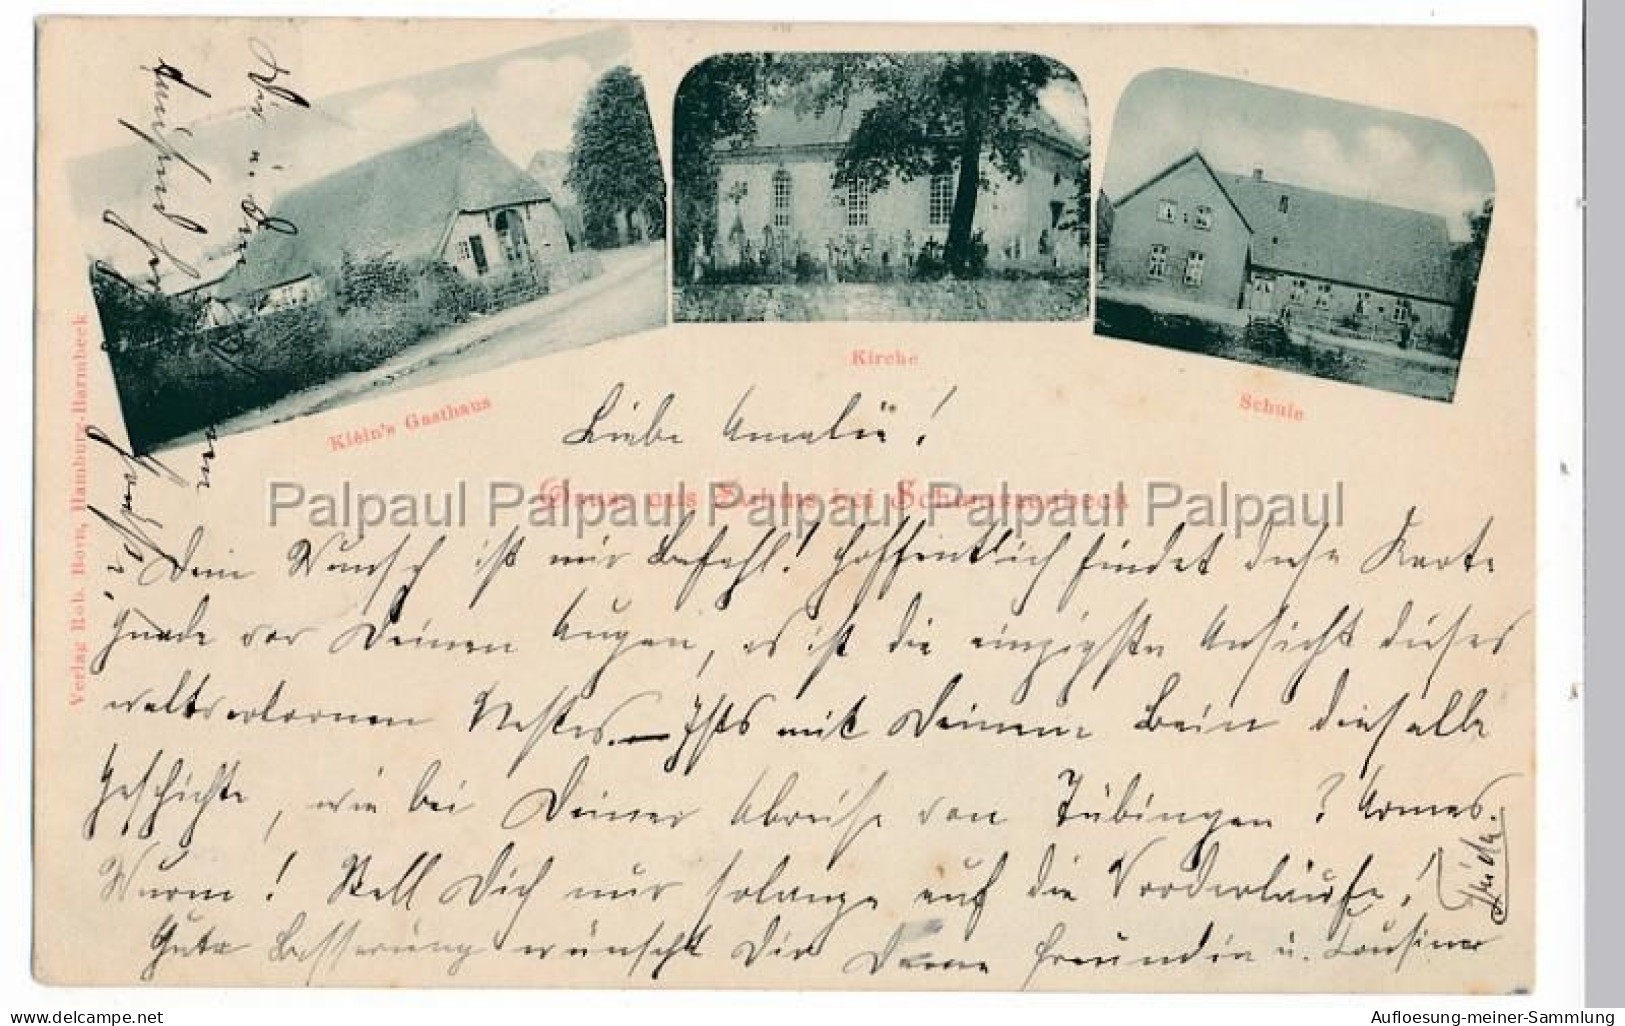 Klein's Gasthaus
Kirche
Schule
Verlag Rob. Born, Hamburg-Barmbeck
Liebe Amalie!
Gruss aus bei
Palpaul Palpaul Palpaul Palpaul Palpaul
Dein Wunsch ist mir Befehl! Hoffentlich findet diese Karte
Gnade vor Deinen Augen, es ist die einzigste Ansicht dieses
weltverlornen Nestes. — Ists mit Deinem Bein dieselbe
Geschichte, wie bei Deiner Abreise von Tübingen? Armes
Wurm! Stell Dich nur solange auf die Vorderläufe!
Gute Besserung wünscht Dir Deine Freundin u. Cousine
Dir u.
tausend
delcampe.net
Aufloesung-meiner-Sammlung